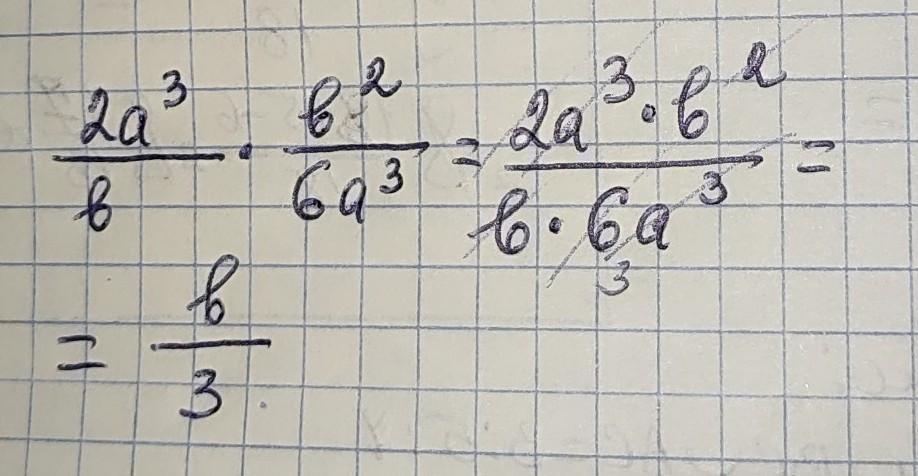 2a³/b · b²/6a³ = 2a³·b²/b·6a³ =
3
= b/3